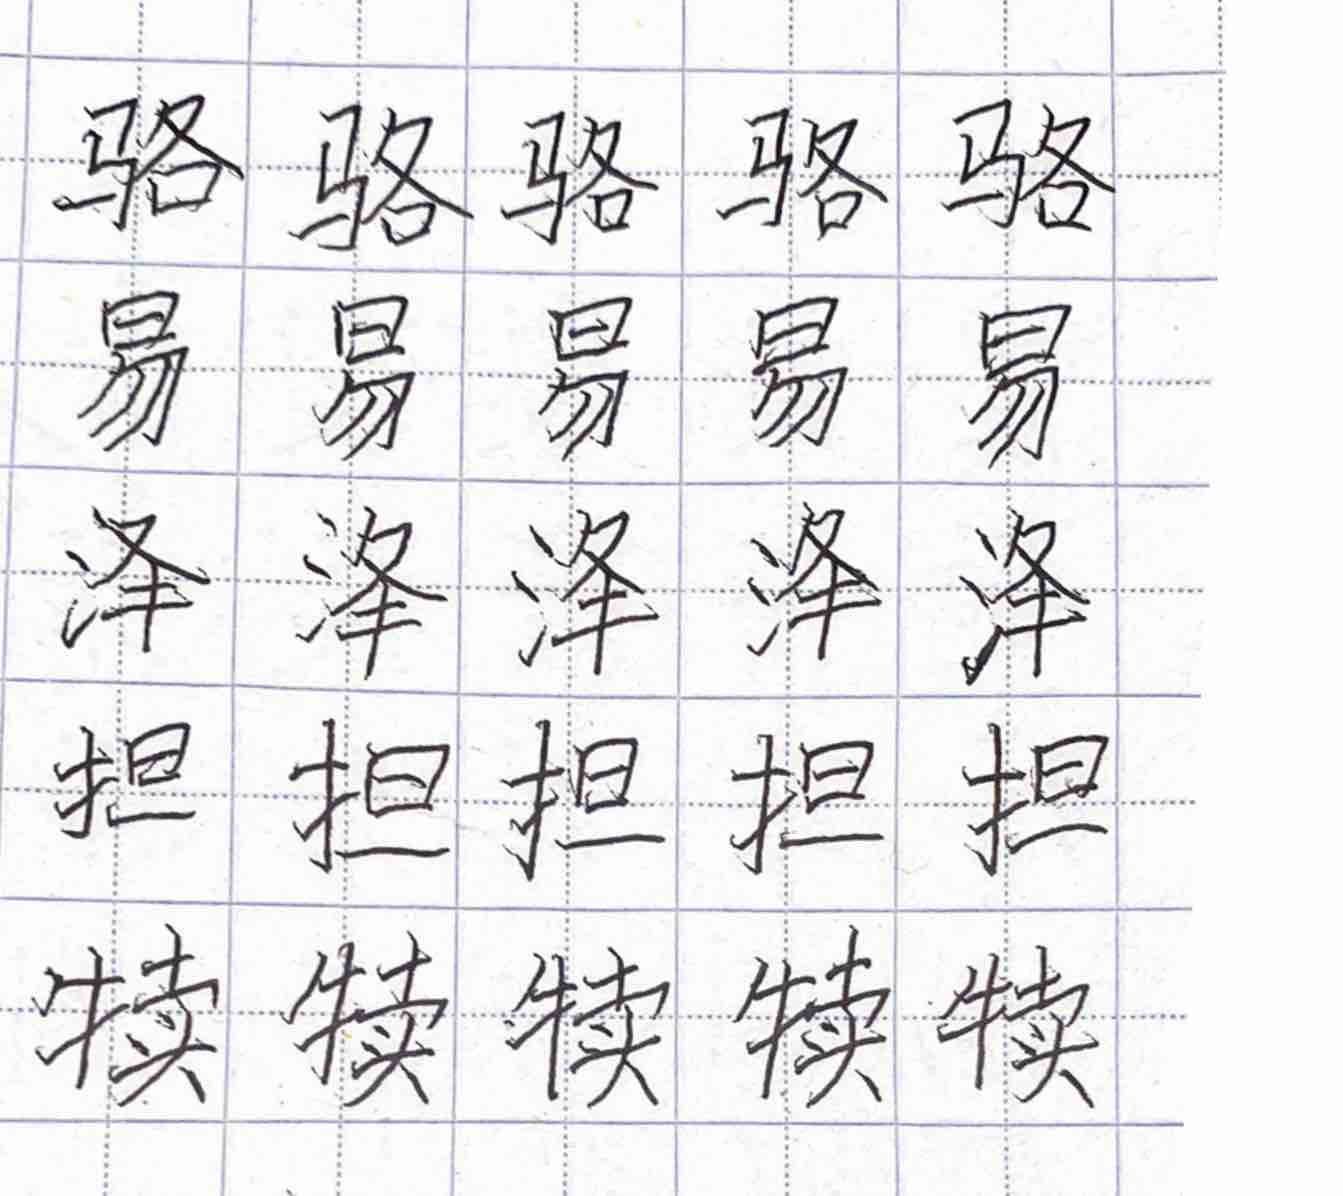 骆骆骆骆骆
易易易易易
泽泽泽泽泽
担担担担担
犊犊犊犊犊